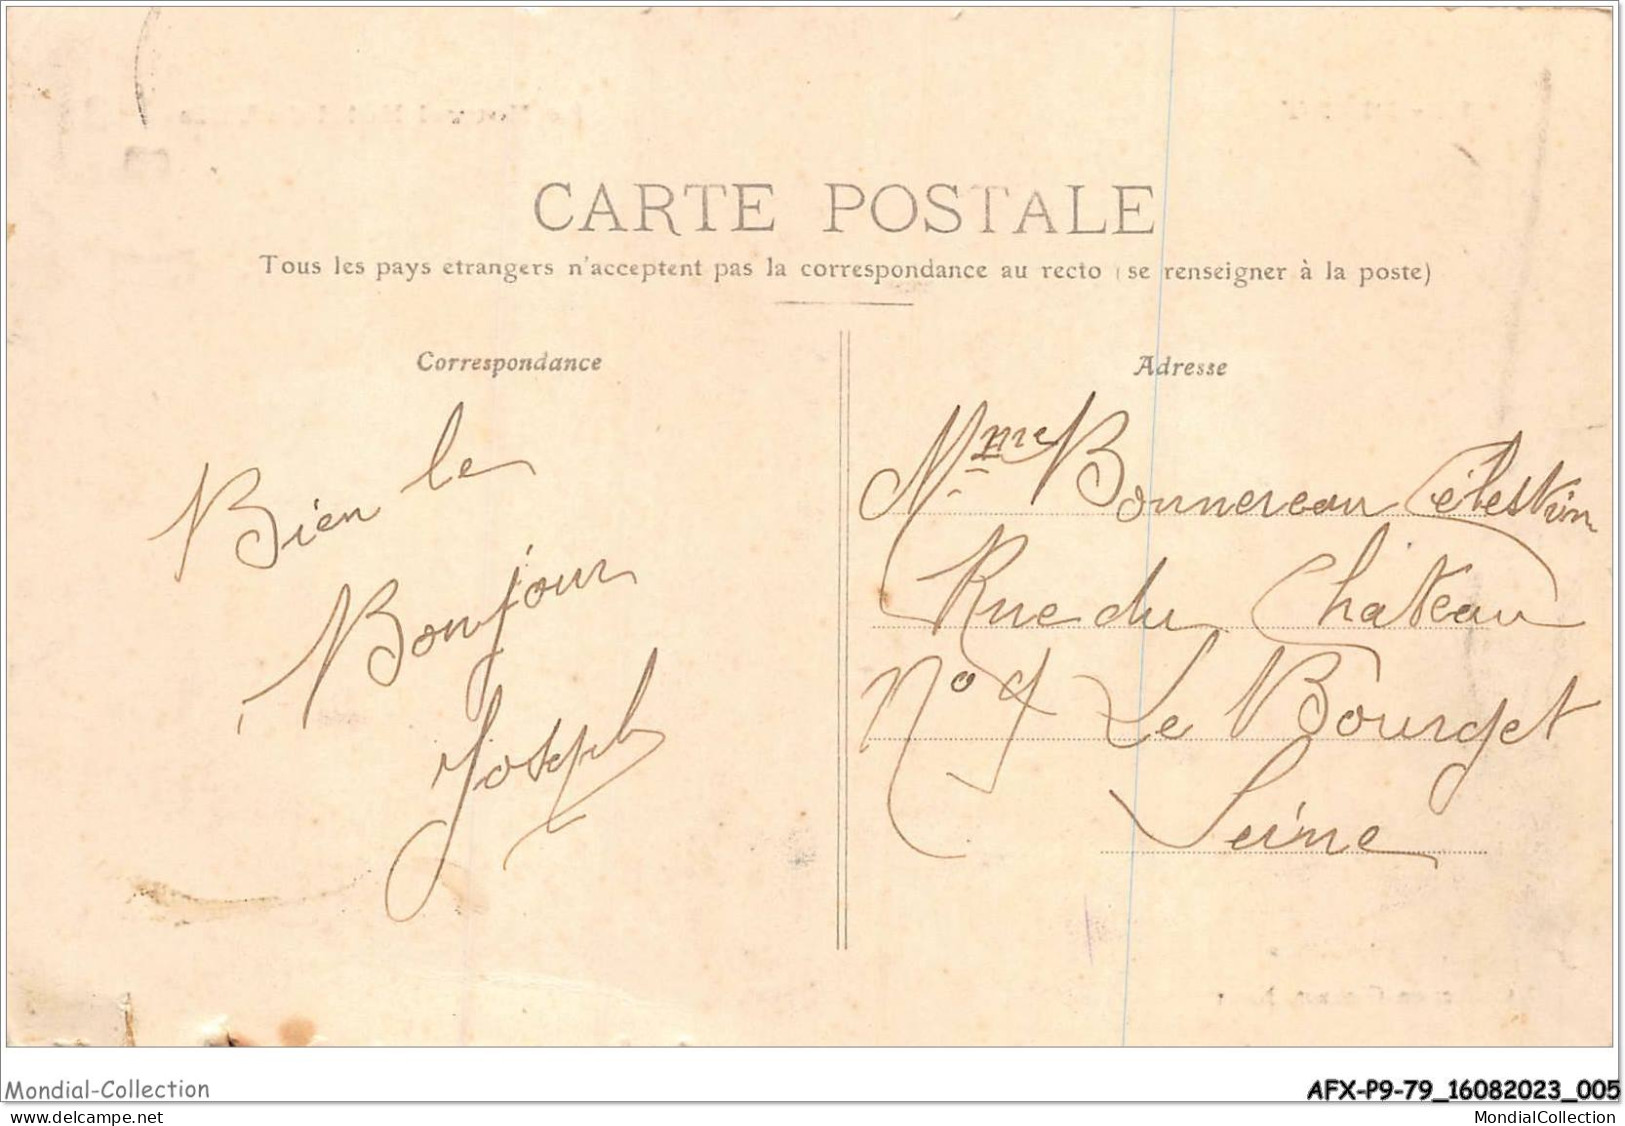 CARTE POSTALE
Tous les pays etrangers n'acceptent pas la correspondance au recto (se renseigner à la poste)
Correspondance
Bien le
Bonjour
Joseph
Adresse
Mme Bonnereau Célestin
Rue du Chateau
No 9 Le Bourget
Seine
Mondial-Collection
AFX-P9-79_16082023_005
www.delcampe.net
MondialCollection